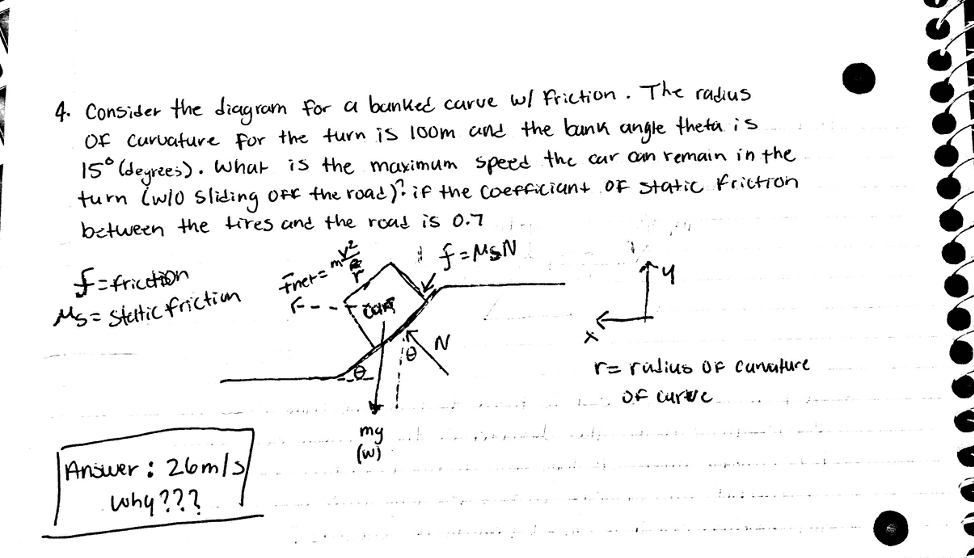 4. Consider the diagram for a banked curve w/ friction. The radius
of curvature for the turn is 100m and the bank angle theta is
15° (degrees). What is the maximum speed the car can remain in the
turn (w/o sliding off the road)? if the coefficient of static friction
between the tires and the road is 0.7
f = friction
μs = static friction
Fnet = mv²/r
f = μsN
car
θ
θ
N
mg
(w)
y
x
r = radius of curvature
of curve
Answer: 26m/s
why???